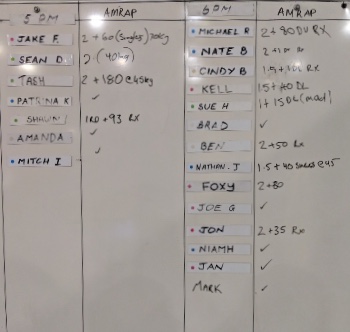 5 PM AMRAP
JAKE F. 2 + 60 (Singles) 70kg
SEAN D 2 (40kg)
TASH 2 + 180 @45kg
PATRINA K ✓
SHAUN 1RD + 93 RX
AMANDA ✓
MITCH I ✓
6 PM AMRAP
MICHAEL R 2 + 80 DU RX
NATE B
CINDY B 1.5 +
KELL 15 + 40 DL
SUE H 1 + 15 DL (mod)
BRAD ✓
BEN 2 + 50 RX
NATHAN. J 1.5 + 40 @45
FOXY 2 + 80
JOE G ✓
JON 2 + 35 Rx
NIAMH ✓
JAN ✓
MARK ✓